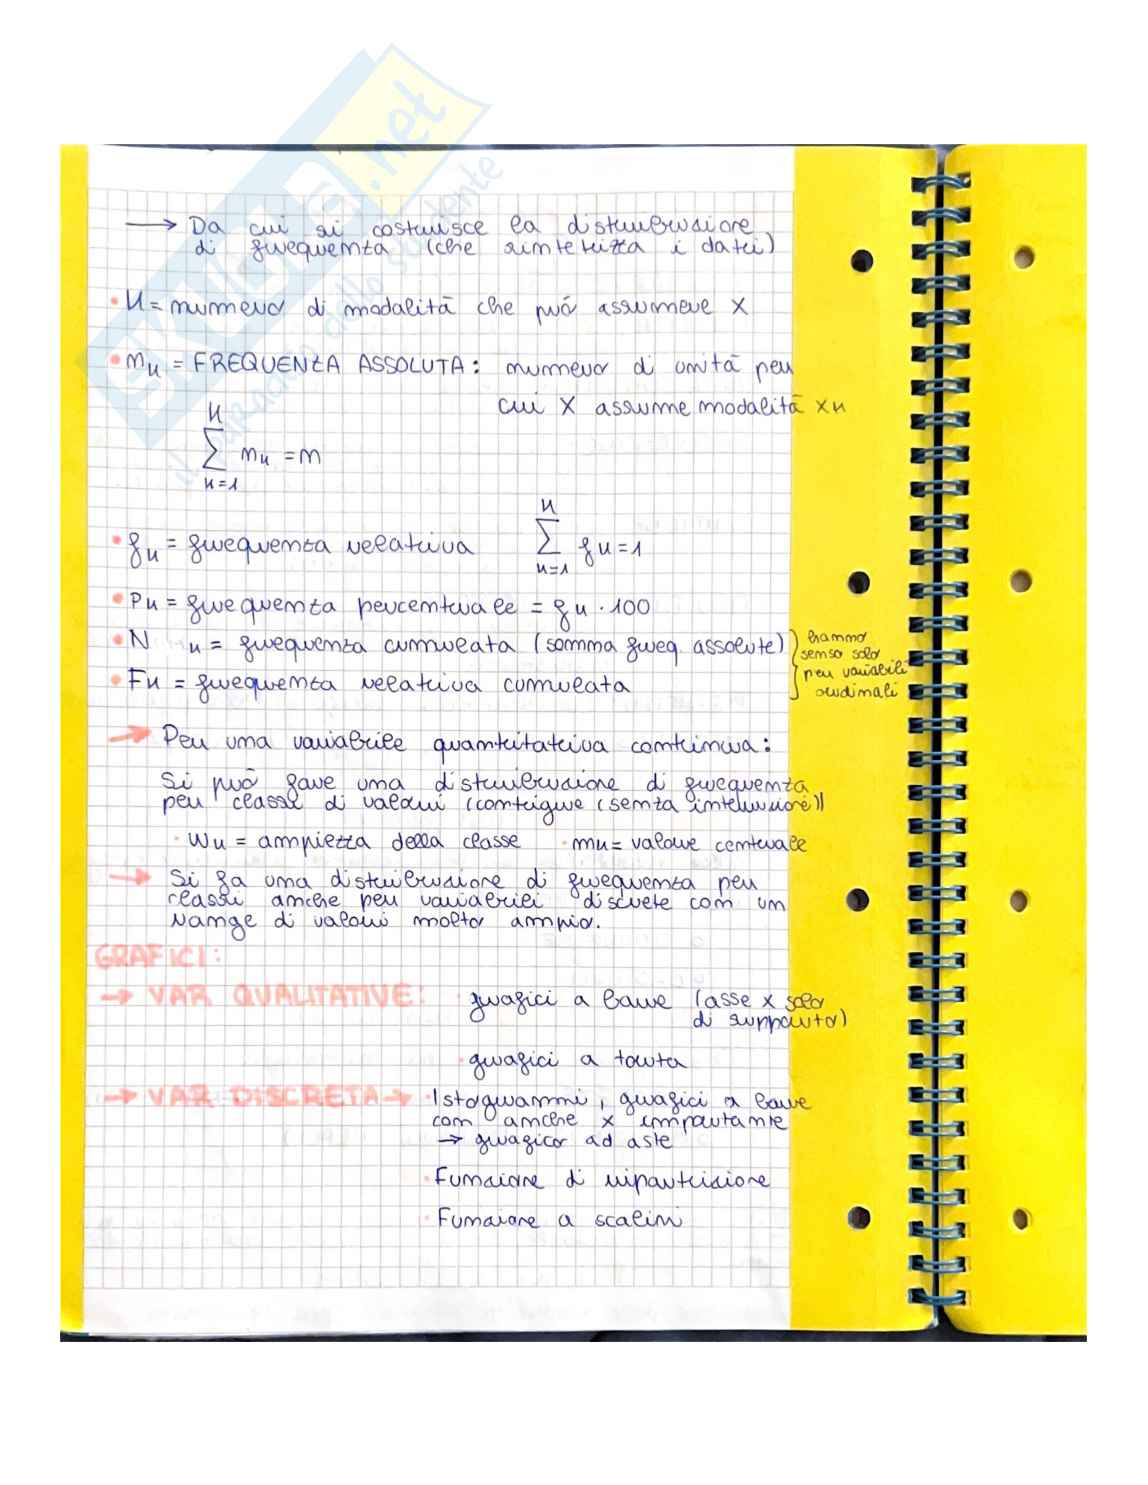 SKUOLA.net
il paradiso dello studente
→ Da cui si costruisce la distribuzione
di frequenza (che sintetizza i dati)
• K = numero di modalità che può assumere X
• nk = FREQUENZA ASSOLUTA: numero di unità per
cui X assume modalità xk
K
∑ nk = n
k=1
• fk = frequenza relativa
K
∑ fk = 1
k=1
• Pk = frequenza percentuale = fk · 100
• N k = frequenza cumulata (somma freq. assolute)
• Fk = frequenza relativa cumulata
hanno
senso solo
per variabili
ordinali
→ Per una variabile quantitativa continua:
Si può fare una distribuzione di frequenza
per classi di valori (contigue (senza interruzioni))
• wk = ampiezza della classe • mk = valore centrale
→ Si fa una distribuzione di frequenza per
classi anche per variabili discrete con un
range di valori molto ampio.
GRAFICI:
→ VAR QUALITATIVE: • grafici a barre (asse x solo
di supporto)
• grafici a torta
→ VAR DISCRETA → • Istogrammi, grafici a barre
con anche x importante
→ grafico ad aste
• Funzione di ripartizione
• Funzione a scalini